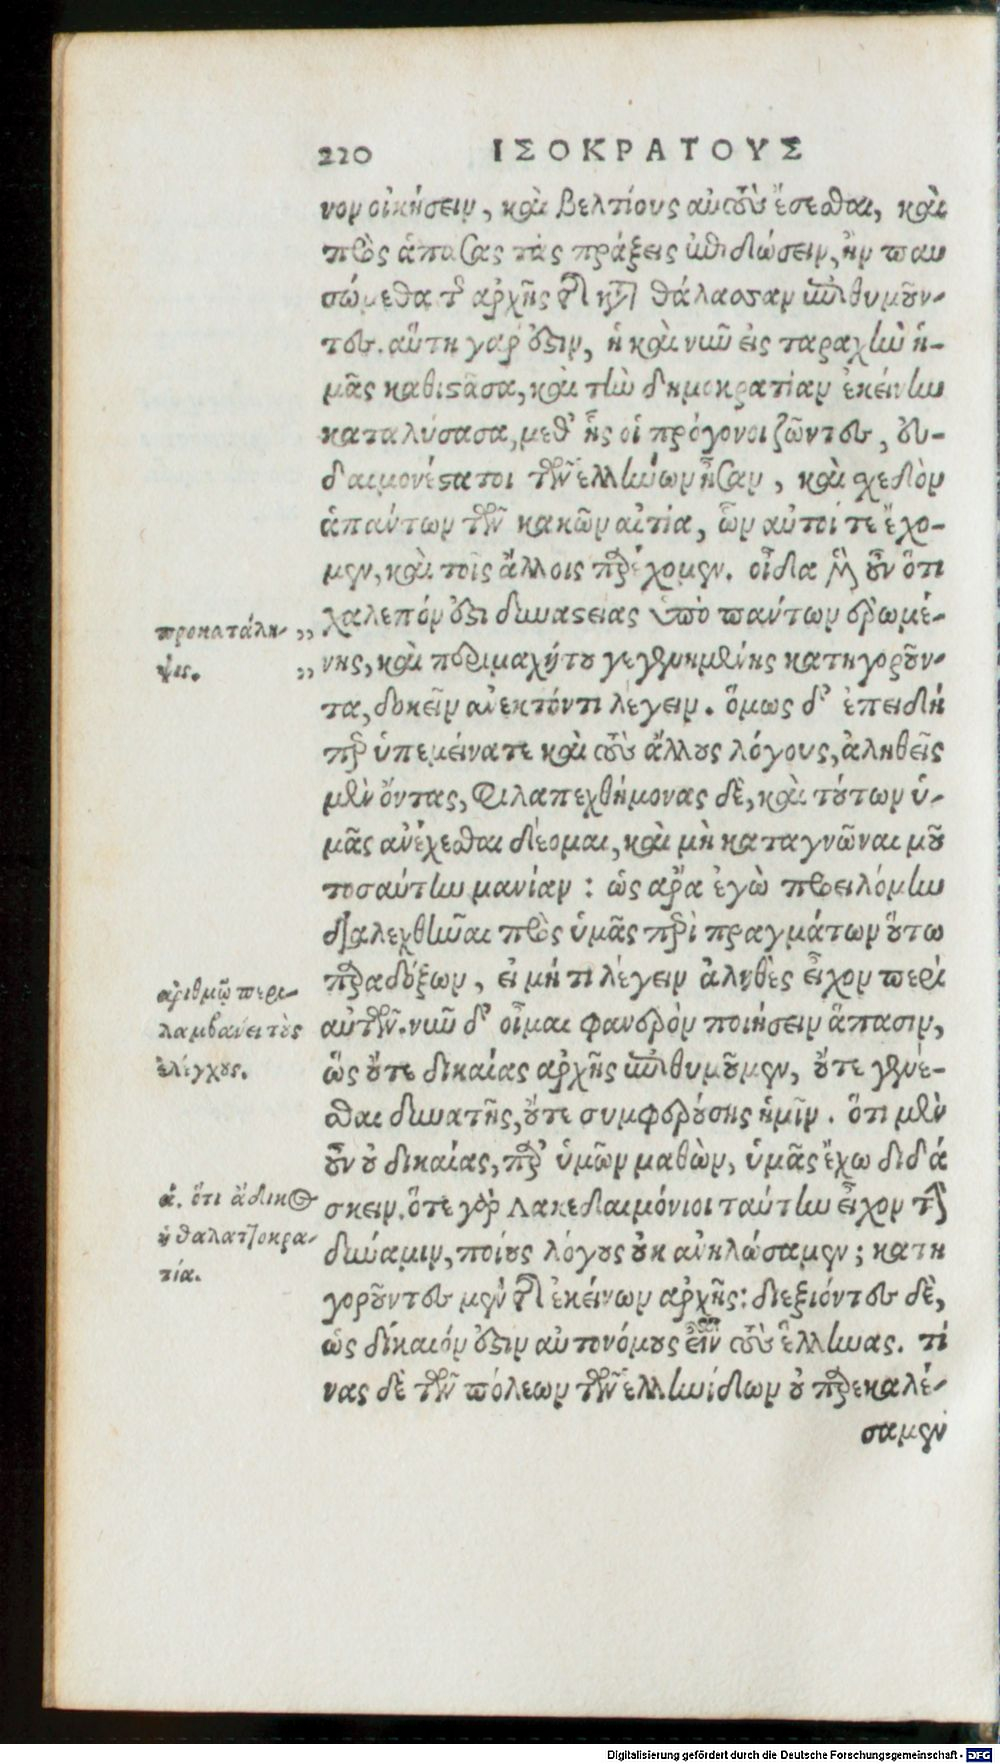 220 ΙΣΟΚΡΑΤΟΥΣ
νον οἰκήσειν, καὶ βελτίους αὐτοὺς ἔσεσθαι, καὶ
πρὸς ἁπάσας τὰς πράξεις ἐπιδώσειν, ἢν παυ
σώμεθα τῆς ἀρχῆς τῆς κατὰ θάλασσαν ἐπιθυμοῦν-
τες. αὕτη γάρ ἐστιν, ἡ καὶ νῦν εἰς ταραχὴν ἡ-
μᾶς καθιστᾶσα, καὶ τὴν δημοκρατίαν ἐκείνην
καταλύσασα, μεθ' ἧς οἱ πρόγονοι ζῶντες, εὐ-
δαιμονέστατοι τῶν ἑλλήνων ἦσαν, καὶ σχεδὸν
ἁπάντων τῶν κακῶν αἰτία, ὧν αὐτοί τε ἔχο-
μεν, καὶ τοῖς ἄλλοις παρέχομεν. οἶδα μὲν οὖν ὅτι
προκατάλη- ,, χαλεπόν ἐστι δυναστείας ὑπὸ πάντων ἐρωμέ-
ψις. ,, νης, καὶ περιμαχήτου γεγενημένης κατηγοροῦν-
τα, δοκεῖν ἀνεκτόν τι λέγειν. ὅμως δ' ἐπειδή
περ ὑπεμείνατε καὶ τοὺς ἄλλους λόγους, ἀληθεῖς
μὲν ὄντας, φιλαπεχθήμονας δὲ, καὶ τούτων ὑ-
μᾶς ἀνέχεσθαι δέομαι, καὶ μὴ καταγνῶναι μοῦ
τοσαύτην μανίαν : ὡς ἄρα ἐγὼ προειλόμην
διαλεχθῆναι πρὸς ὑμᾶς περὶ πραγμάτων οὕτω
παραδόξων, εἰ μή τι λέγειν ἀληθὲς εἶχον περὶ
ἀριθμῷ περι-
λαμβάνει τοὺς
ἐλέγχους.
αὐτῶν. νῦν δ' οἶμαι φανερὸν ποιήσειν ἅπασιν,
ὡς οὔτε δικαίας ἀρχῆς ἐπιθυμοῦμεν, οὔτε γενέ-
σθαι δυνατῆς, οὔτε συμφερούσης ἡμῖν. ὅτι μὲν
οὖν οὐ δικαίας, παρ' ὑμῶν μαθὼν, ὑμᾶς ἔχω διδά
ά. ὅτι ἄδικος
ἡ θαλαττοκρα-
τία.
σκειν. ὅτε γὰρ Λακεδαιμόνιοι ταύτην εἶχον τὴν
δύναμιν, ποίους λόγους οὐκ ἀνηλώσαμεν; κατη
γοροῦντες μὲν τῆς ἐκείνων ἀρχῆς: διεξιόντες δὲ,
ὡς δίκαιόν ἐστιν αὐτονόμους εἶναι τοὺς ἕλληνας. τί
νας δὲ τῶν πόλεων τῶν ἑλληνίδων οὐ παρεκαλέ-
σαμεν
Digitalisierung gefördert durch die Deutsche Forschungsgemeinschaft - DFG